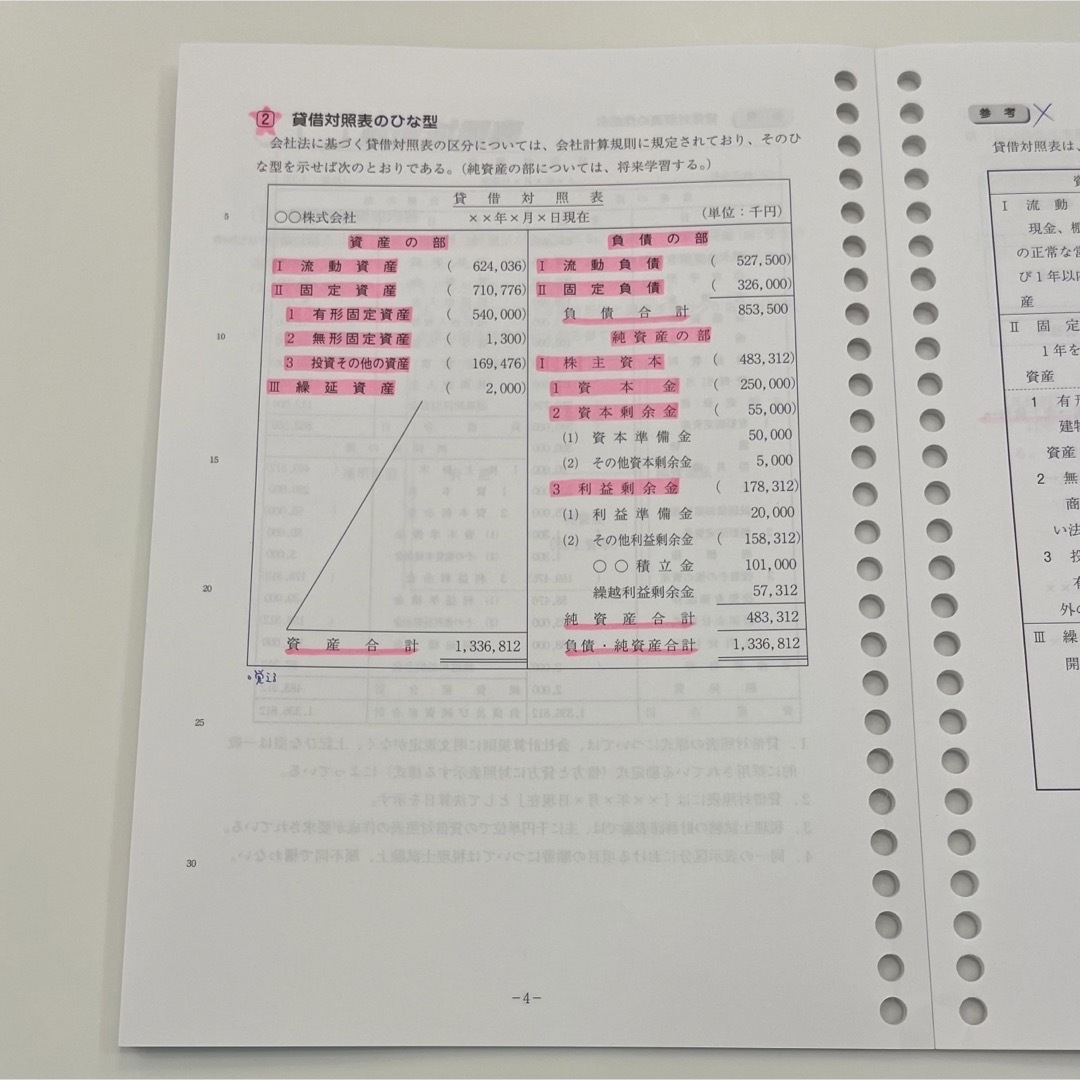 2 貸借対照表のひな型
会社法に基づく貸借対照表の区分については、会社計算規則に規定されており、そのひ
な型を示せば次のとおりである。（純資産の部については、将来学習する。）
貸借対照表
5 〇〇株式会社 ××年×月×日現在 （単位：千円）
資産の部
Ⅰ 流動資産 ( 624,036)
Ⅱ 固定資産 ( 710,776)
1 有形固定資産 ( 540,000)
10 2 無形固定資産 ( 1,300)
3 投資その他の資産 ( 169,476)
Ⅲ 繰延資産 ( 2,000)
資産合計 1,336,812
負債の部
Ⅰ 流動負債 ( 527,500)
Ⅱ 固定負債 ( 326,000)
負債合計 853,500
純資産の部
Ⅰ 株主資本 ( 483,312)
1 資本金 ( 250,000)
2 資本剰余金 ( 55,000)
(1) 資本準備金 50,000
15 (2) その他資本剰余金 5,000
3 利益剰余金 ( 178,312)
(1) 利益準備金 20,000
(2) その他利益剰余金 ( 158,312)
〇〇積立金 101,000
20 繰越利益剰余金 57,312
純資産合計 483,312
負債・純資産合計 1,336,812
覚える
25
30
－4－
参考 ×
貸借対照表は、
資
Ⅰ 流動
現金、棚
の正常な営
び1年以内
産
Ⅱ 固定
1年を
資産
1 有形
建物
資産
2 無
商
い法
3 投
有
外の
Ⅲ 繰
開